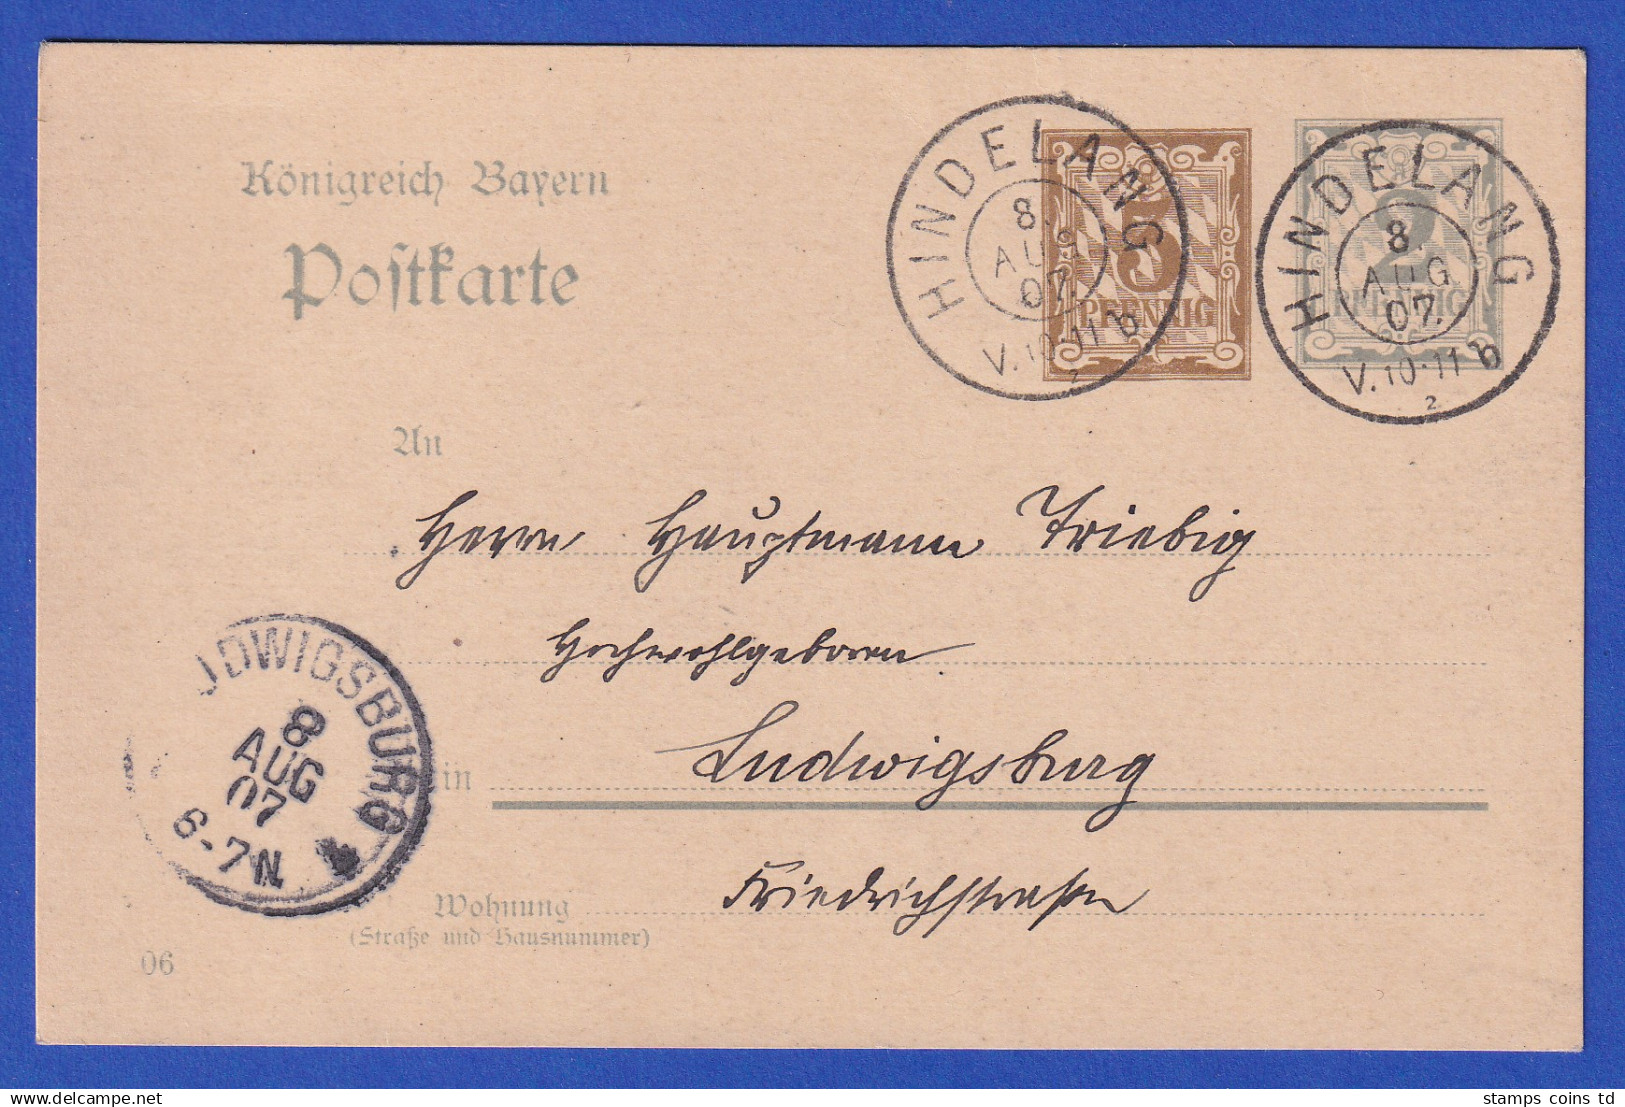 Königreich Bayern
Postkarte
HINDELANG
8.
AUG
07.
V.10-11 b
2
3
PFENNIG
HINDELANG
8.
AUG
07.
V.10-11 b
2
2
PFENNIG
An
Herrn Hauptmann Triebig
Hochwohlgeboren
in Ludwigsburg
Wohnung Friedrichstraße
(Straße und Hausnummer)
06
UDWIGSBURG
8
AUG
07
6-7N
stamps coins td
delcampe.net